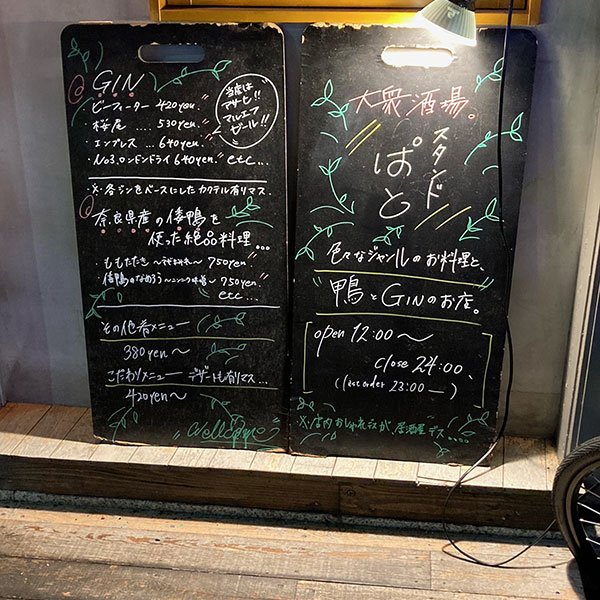 GIN
ビーフィーター 420yen.
・桜尾 .... 530yen.
・エンプレス ... 640yen.
・No3.ロンドンドライ 640yen. etc...
当店は
アサヒ!!
マルエフ
ビール!!
※・各ジンをベースにしたカクテル有リマス.
奈良県産の倭鴨を
使った絶品料理...
・ももたたき 750yen
・倭鴨のなめろう 〜ニンニク味噌〜 750yen
etc...
その他肴メニュー
380yen〜
こだわりメニュー デザートも有リマス...
420yen〜
Wellcome
大衆酒場。
スタンド
ぱと
色々なジャンルのお料理と、
"鴨とGINのお店。
open 12:00〜
close 24:00、
(Last order 23:00 —)
※・店内おしゃれですが、居酒屋デス....